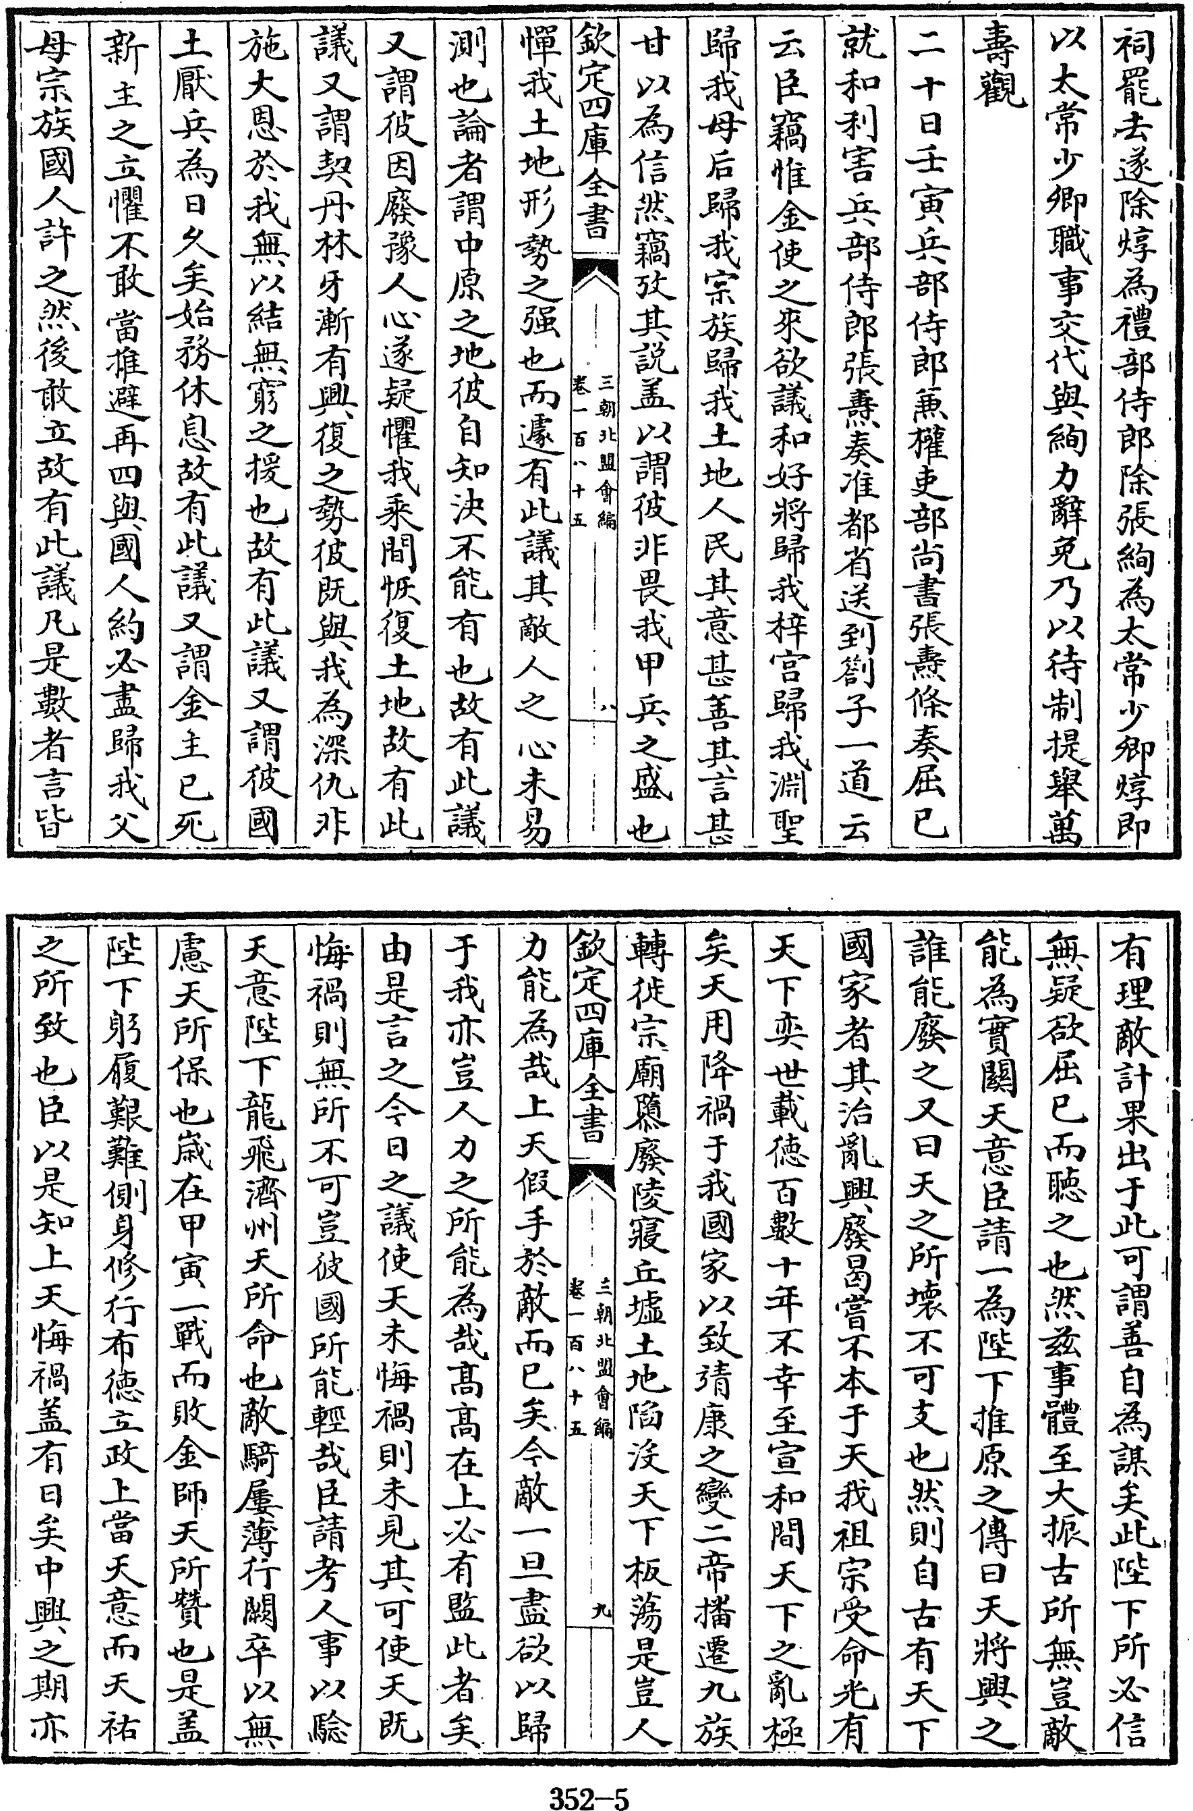 祠罷去遂除焞為禮部侍郎除張絢為太常少卿焞即
以太常少卿職事交代與絢力辭免乃以待制提舉萬
壽觀
二十日壬寅兵部侍郎兼權吏部尚書張燾條奏屈已
就和利害兵部侍郎張燾奏准都省送到劄子一道云
云臣竊惟金使之來欲議和好將歸我梓宫歸我淵聖
歸我母后歸我宗族歸我土地人民其意甚善其言甚
甘以為信然竊攷其説盖以謂彼非畏我甲兵之盛也
欽定四庫全書
三朝北盟會編
卷一百八十五
八
憚我土地形勢之强也而遽有此議其敵人之心未易
測也論者謂中原之地彼自知決不能有也故有此議
又謂彼因廢豫人心遂疑懼我乘間恢復土地故有此
議又謂契丹林牙漸有興復之勢彼既與我為深仇非
施大恩於我無以結無窮之援也故有此議又謂彼國
土厭兵為日久矣始務休息故有此議又謂金主已死
新主之立懼不敢當推避再四與國人約必盡歸我父
母宗族國人許之然後敢立故有此議凡是數者言皆
有理敵計果出于此可謂善自為謀矣此陛下所必信
無疑欲屈已而聽之也然兹事體至大振古所無豈敵
能為實關天意臣請一為陛下推原之傳曰天將興之
誰能廢之又曰天之所壊不可支也然則自古有天下
國家者其治亂興廢曷嘗不本于天我祖宗受命光有
天下奕世載徳百數十年不幸至宣和間天下之亂極
矣天用降禍于我國家以致靖康之變二帝播遷九族
轉徙宗廟隳廢陵寢丘墟土地陷没天下板蕩是豈人
欽定四庫全書
三朝北盟會編
卷一百八十五
九
力能為哉上天假手於敵而已矣今敵一旦盡欲以歸
于我亦豈人力之所能為哉髙髙在上必有監此者矣
由是言之今日之議使天未悔禍則未見其可使天既
悔禍則無所不可豈彼國所能輕哉臣請考人事以驗
天意陛下龍飛濟州天所命也敵騎屢薄行闕卒以無
慮天所保也歳在甲寅一戰而敗金師天所贊也是盖
陛下躬履艱難側身修行布徳立政上當天意而天祐
之所致也臣以是知上天悔禍盖有日矣中興之期亦
352-5